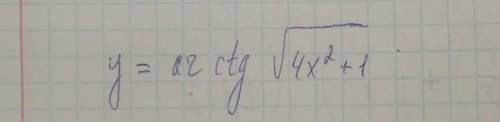 y = arctg √(4x²+1)